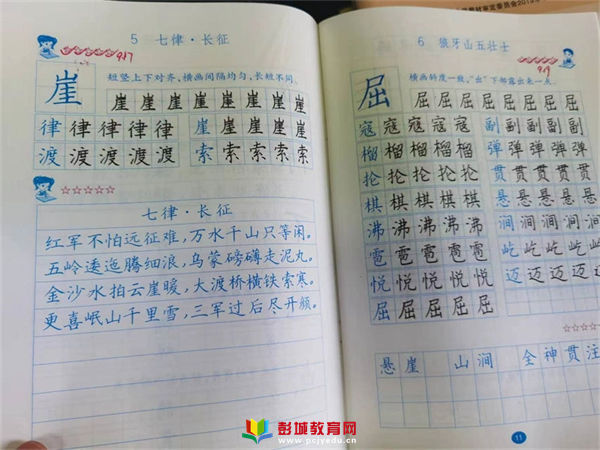 5 七律·长征
短竖上下对齐,横画间隔均匀,长短不同。
崖 崖 崖 崖 崖 崖 崖 崖
律 律 律 律 律 崖 崖 崖 崖
渡 渡 渡 渡 渡 索 索 索 索
☆☆☆☆☆
七律·长征
红军不怕远征难,万水千山只等闲。
五岭逶迤腾细浪,乌蒙磅礴走泥丸。
金沙水拍云崖暖,大渡桥横铁索寒。
更喜岷山千里雪,三军过后尽开颜。
6 狼牙山五壮士
横画斜度一致,“出”下部露出来一点。
屈 屈 屈 屈 屈 屈 屈 屈
寇 寇 寇 寇 寇 副 副 副 副
榴 榴 榴 榴 榴 弹 弹 弹 弹
抡 抡 抡 抡 抡 贯 贯 贯 贯
棋 棋 棋 棋 棋 悬 悬 悬 悬
沸 沸 沸 沸 沸 涧 涧 涧 涧
雹 雹 雹 雹 雹 屹 屹 屹 屹
悦 悦 悦 悦 悦 迈 迈 迈 迈
屈 屈 屈 屈 屈
☆☆☆☆
悬崖 山涧 全神贯注
11
彭城教育网
www.pcjyedu.cn